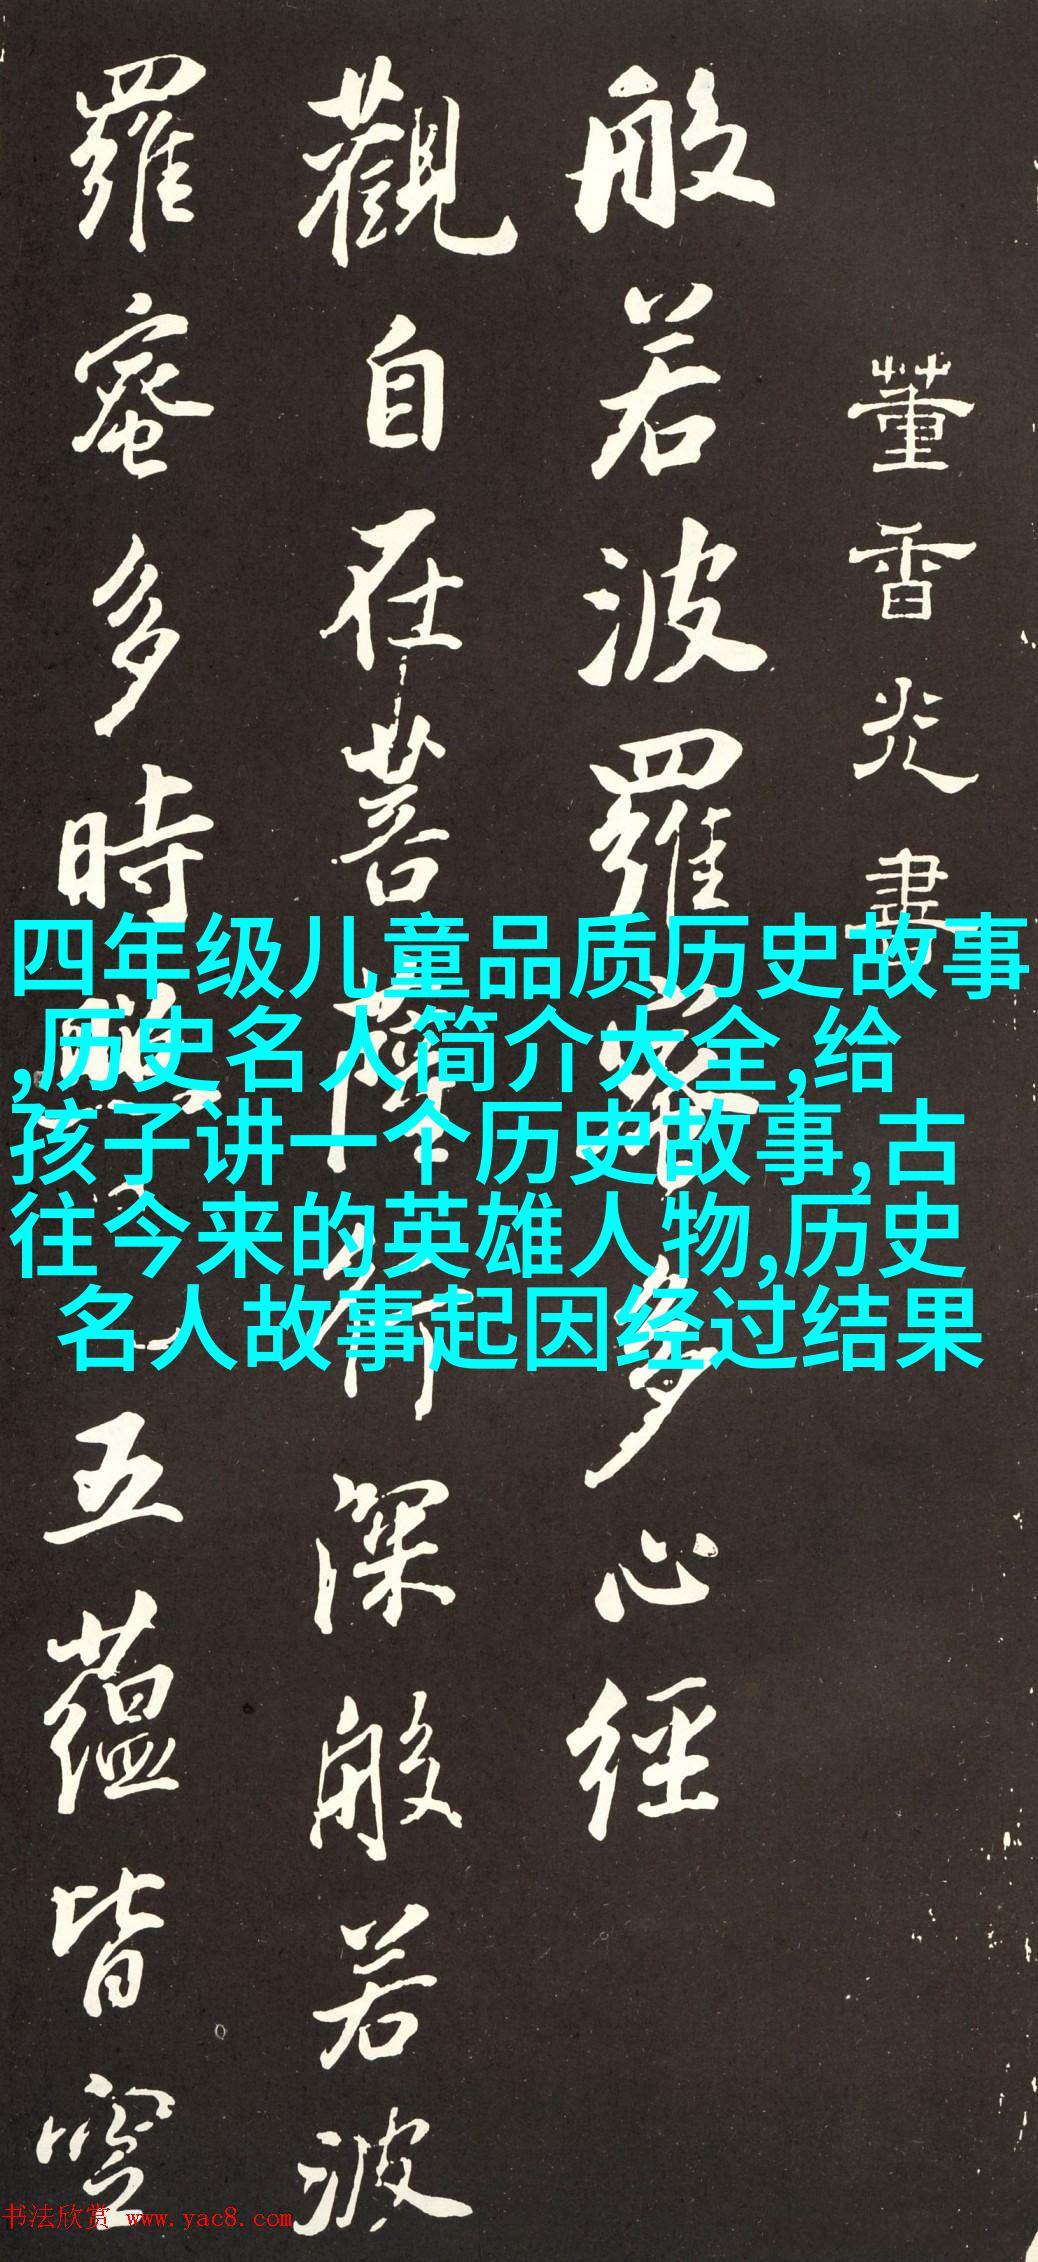 董香光書
般若波羅蜜多心經
觀自在菩薩行深般若波
羅蜜多時照見五蘊皆空
四年级儿童品质历史故事
,历史名人简介大全,给
孩子讲一个历史故事,古
往今来的英雄人物,历史
名人故事起因经过结果
书法欣赏 www.yac8.com